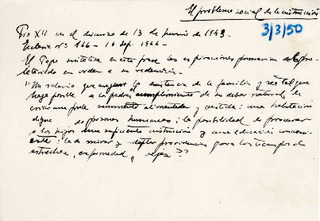 El problema social de la instrucción
3/3/50
Pío XII en el discurso de 13 de junio de 1943.
nº 166 - 16 sep. 1944 -
El Papa en esta frase las aspiraciones
en orden a su
"Un salario que asegure la existencia de la familia y sea tal que
haga posible a los padres cumplimiento de su deber natural de
criar una prole alimentada y vestida: una habitación
digna de personas humanas: la posibilidad de procurar
a los hijos una suficiente instrucción y una educación conveni-
ente: la de mirar y adoptar providencias para los tiempos de
estrechez, enfermedad y vejez"